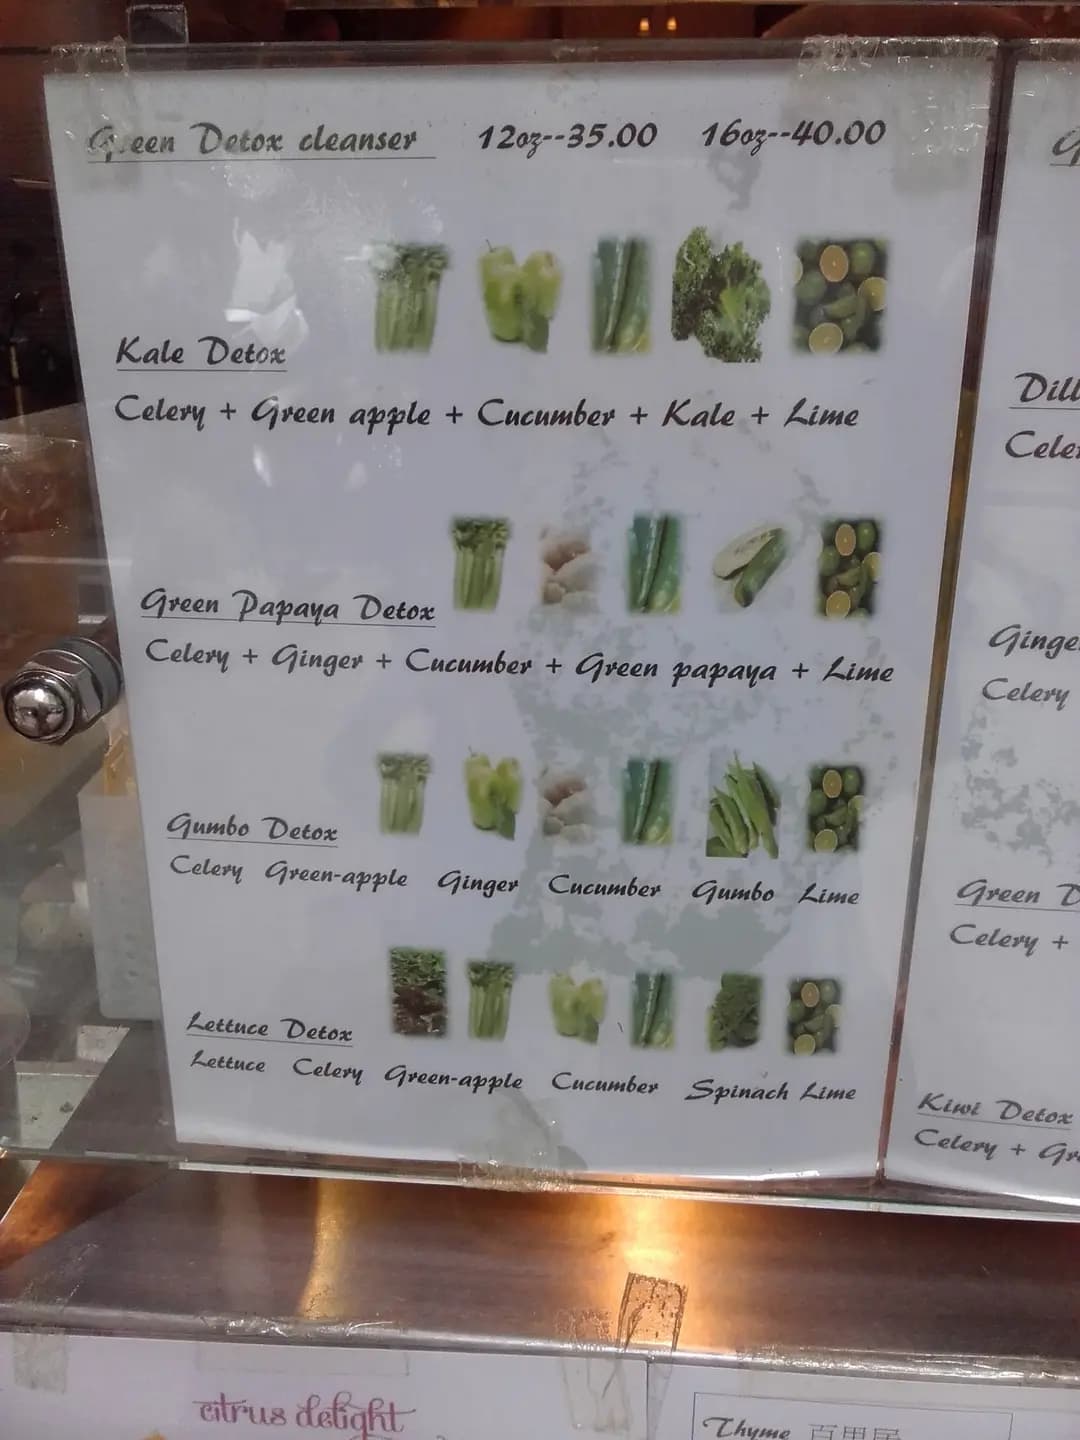 Green Detox cleanser 12oz--35.00 16oz--40.00
Kale Detox
Celery + Green apple + Cucumber + Kale + Lime
Green Papaya Detox
Celery + Ginger + Cucumber + Green papaya + Lime
Gumbo Detox
Celery Green-apple Ginger Cucumber Gumbo Lime
Lettuce Detox
Lettuce Celery Green-apple Cucumber Spinach Lime
Dill
Celer
Ginge
Celery
Green D
Celery +
Kiwi Detox
Celery + Gr
citrus delight
Thyme 百里居